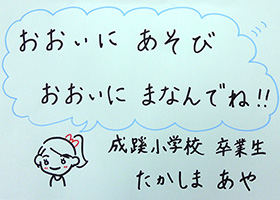 おおいに あそび
おおいに まなんでね!!
成蹊小学校 卒業生
たかしま あや